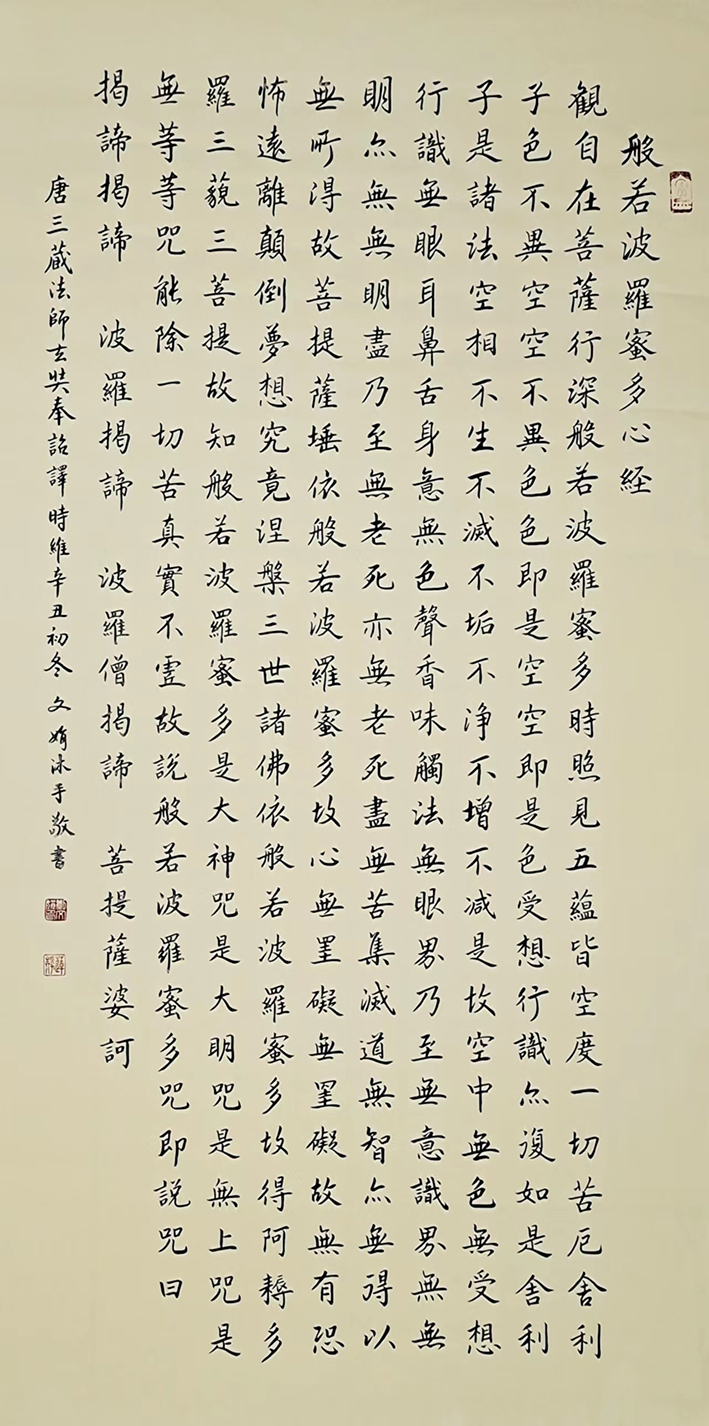 般若波羅蜜多心経
観自在菩薩行深般若波羅蜜多時照見五蘊皆空度一切苦厄舎利
子色不異空空不異色色即是空空即是色受想行識尒復如是舎利
子是諸法空相不生不滅不垢不浄不增不减是故空中無色無受想
行識無眼耳鼻舌身意無色聲香味觸法無眼界乃至無意識界無無
明尒無無明盡乃至無老死亦無老死盡無苦集滅道無智尒無得以
無所得故菩提薩埵依般若波羅蜜多故心無罣礙無罣礙故無有恐
怖遠離顛倒夢想究竟涅槃三世諸佛依般若波羅蜜多故得阿耨多
羅三藐三菩提故知般若波羅蜜多是大神咒是大明咒是無上咒是
無等等咒能除一切苦真實不虛故説般若波羅蜜多咒即説咒曰
揭諦揭諦 波羅揭諦 波羅僧揭諦 菩提薩婆訶
唐三蔵法師玄奘奉詔譯時維辛丑初冬文娟沐手敬書